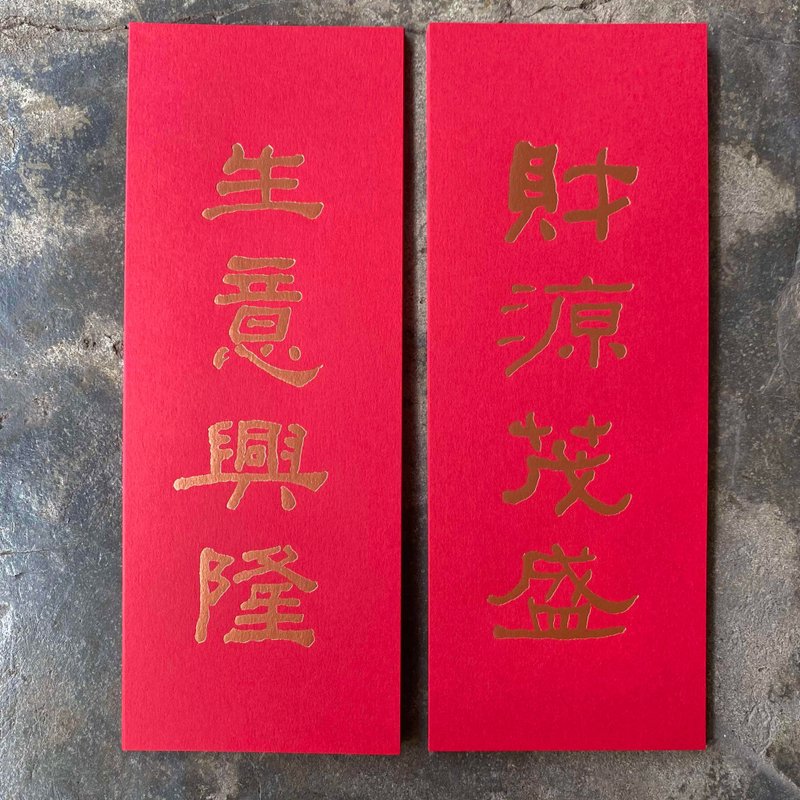 生意興隆
財源茂盛